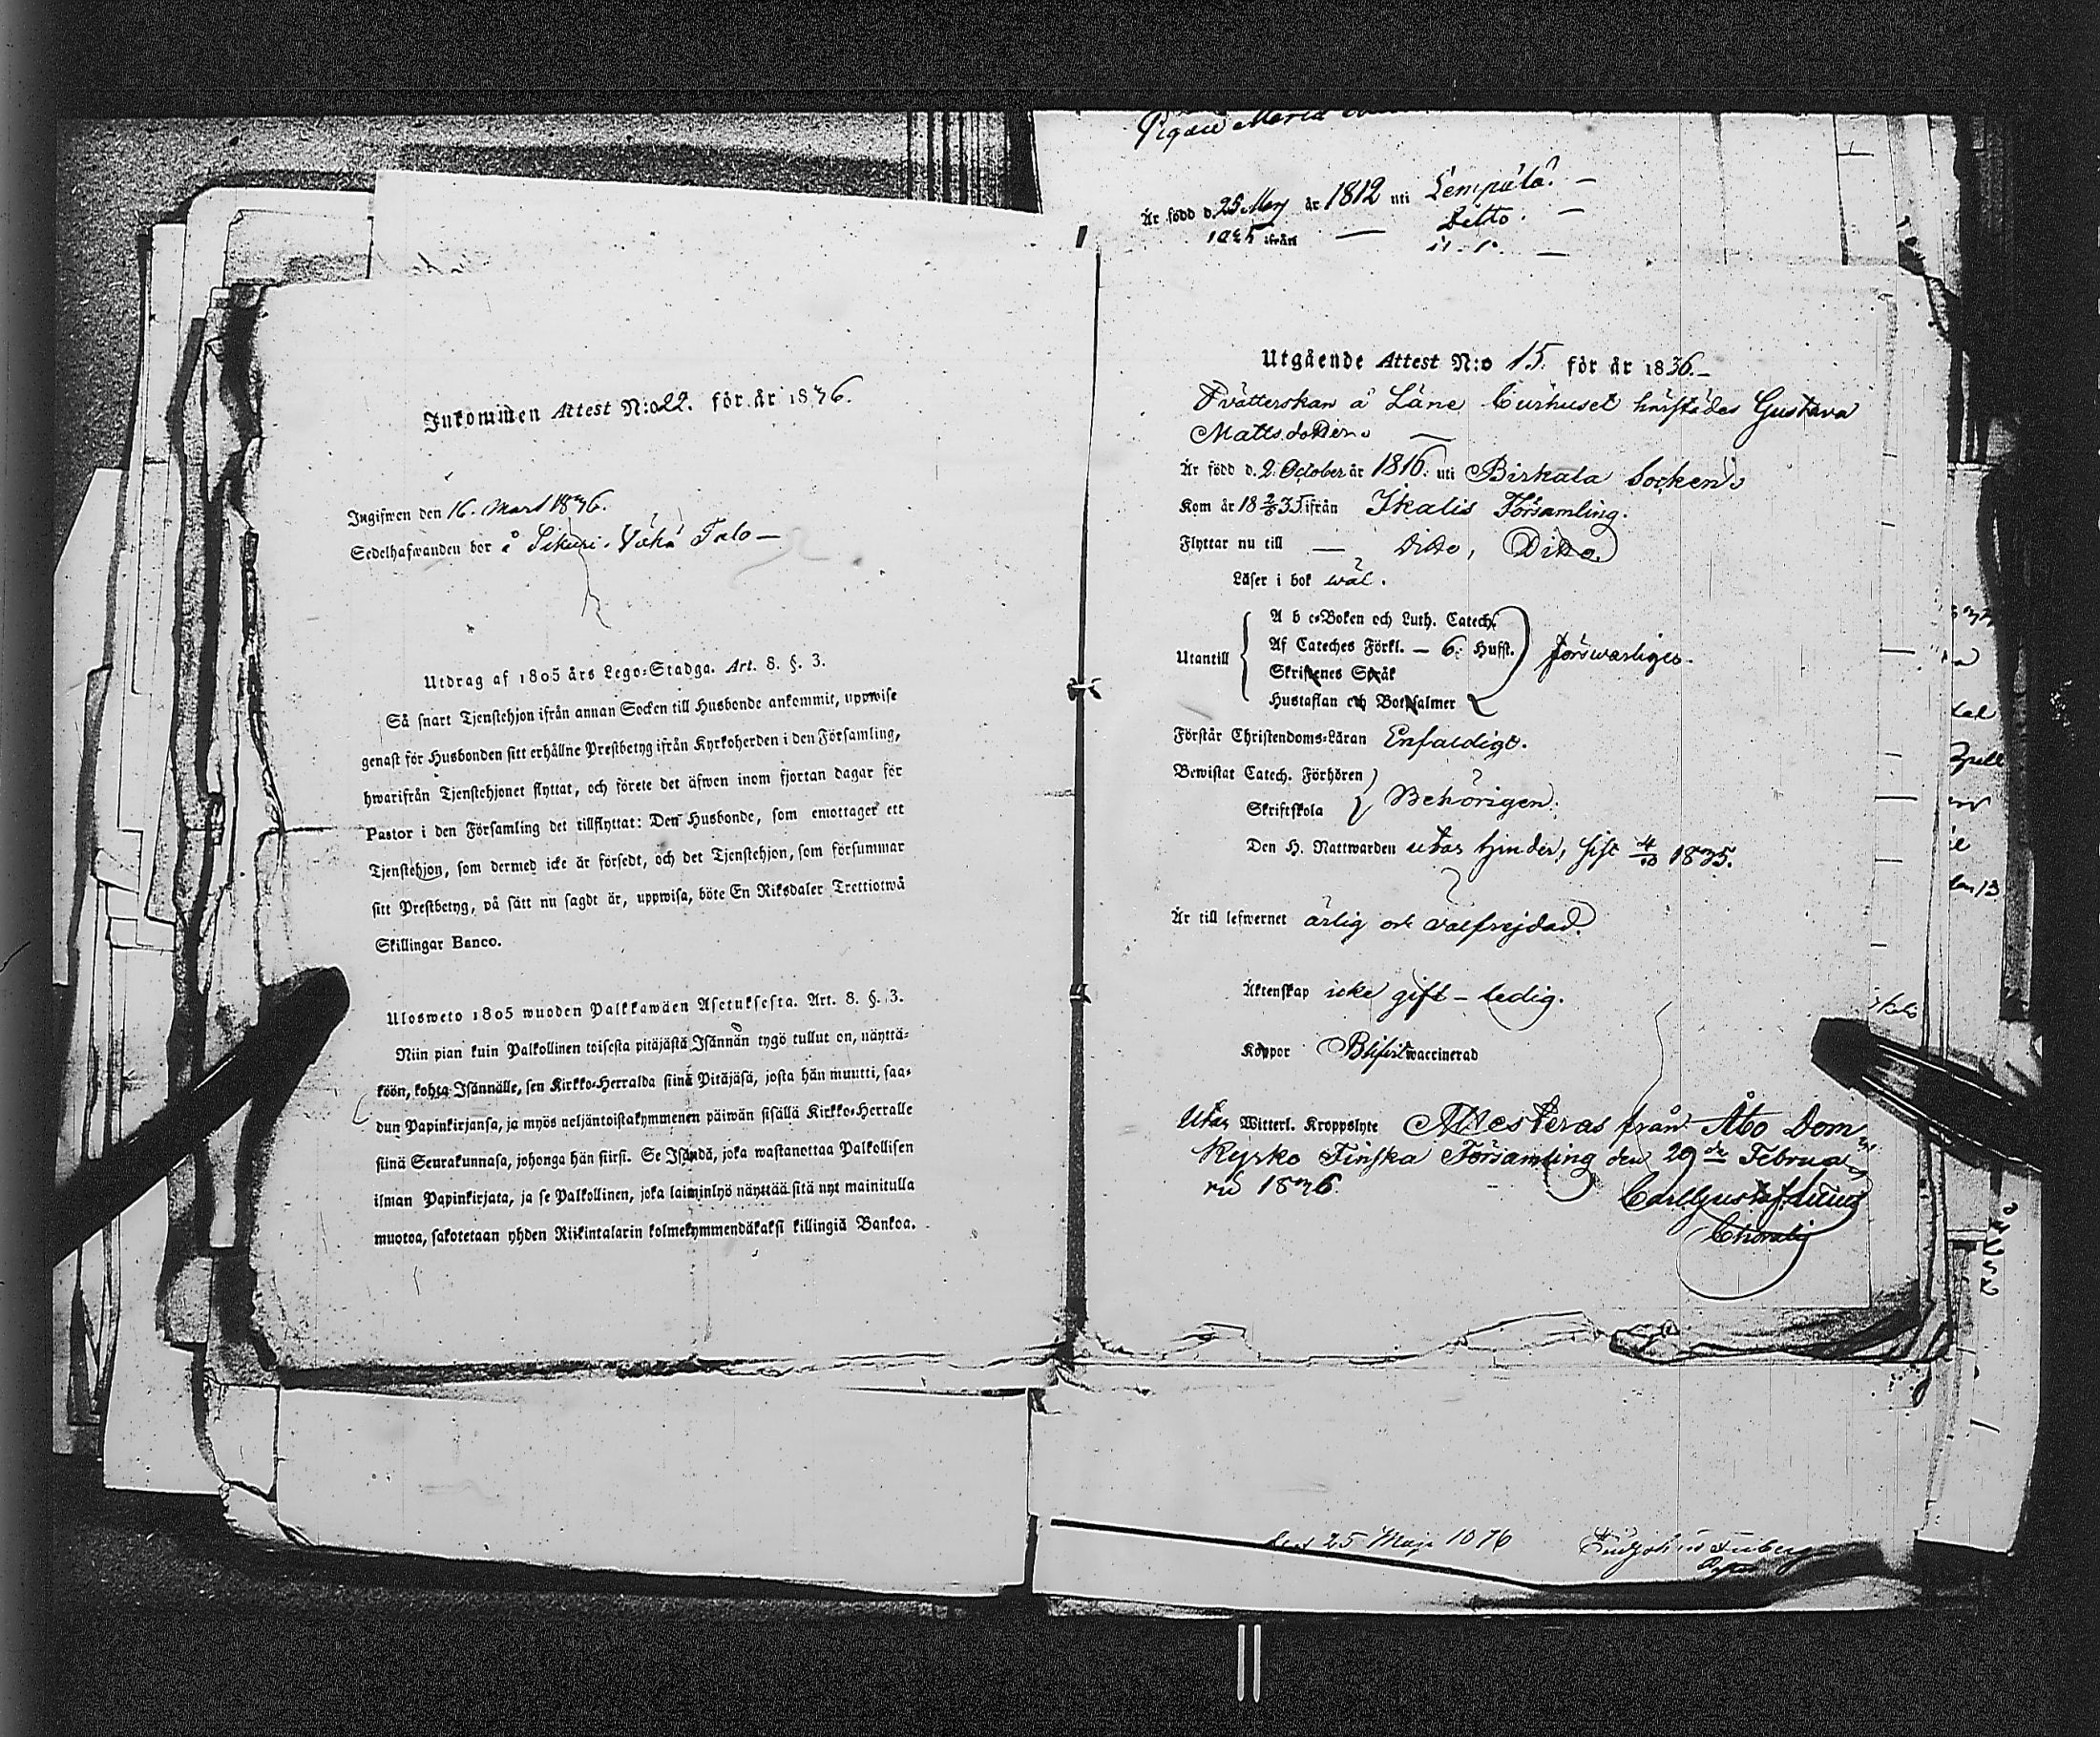 Inkommen Attest N:o 22. för år 1836.
Ingifwen den 16. Mars 1836.
Sedelhafwanden bor å Sikuri. Vähä Talo —
Utdrag af 1805 års Lego-Stadga. Art. 8. §. 3.
Så snart Tjenstehjon ifrån annan Socken till Husbonde ankommit, uppwise
genast för Husbonden sitt erhållne Prestbetyg ifrån Kyrkoherden i den Församling,
hwarifrån Tjenstehjonet flyttat, och förete det äfwen inom fjortan dagar för
Pastor i den Församling det tillflyttat: Den Husbonde, som emottager ett
Tjenstehjon, som dermed icke är försedt, och det Tjenstehjon, som försummar
sitt Prestbetyg, på sätt nu sagdt är, uppwisa, böte En Riksdaler Trettiotwå
Skillingar Banco.
Ulosweto 1805 wuoden Palkkawäen Asetuksesta. Art. 8. §. 3.
Niin pian kuin Palkollinen toisesta pitäjästä Isännän tygö tullut on, näyttä-
köön, kohta Isännälle, sen Kirkko-Herralda siinä Pitäjäsä, josta hän muutti, saa-
dun Papinkirjansa, ja myös neljäntoistakymmenen päiwän sisällä Kirkko-Herralle
siinä Seurakunnasa, johonga hän siirsi. Se Isändä, joka wastanottaa Palkollisen
ilman Papinkirjata, ja se Palkollinen, joka laiminlyö näyttää sitä nyt mainitulla
muotoa, sakotetaan yhden Riikintalarin kolmekymmendäkaksi killingiä Bankoa.
Pigan Maria
Är född d. 25 May år 1812 uti Lempälä. —
1835 ifrån — Ditto. —
Utgående Attest N:o 15. för år 1836. —
Tvätterskan å Läne Curhuset härstädes Gustava
Mattsdotter. —
Är född d. 2. October år 1816. uti Birkala Socken.
Kom år 18 2/6 35 ifrån Ikalis Församling.
Flyttar nu till — Ditto, Ditto.
Läser i bok wäl.
Utantill
A b c-Boken och Luth. Catech.
Af Cateches Förkl. — 6: Hufst. förswarligen.
Skriftenes Språk
Hustaflan och Botpsalmer
Förstår Christendoms-Läran Enfaldigt.
Bewistat Catech. Förhören
Skriftskola Behörigen.
Den H. Nattwarden utan hinder, sist 4/10 1835.
Är till lefwernet ärlig och välfrejdad.
Äktenskap icke gift — ledig.
Koppor Blifvit waccinerad
Utan Witterl. Kroppslyte Attesteras från Åbo Dom
Kyrko Finska Församling den 29de Februa
rii 1836.
Carl Gustaf
den 25 Maji 1836